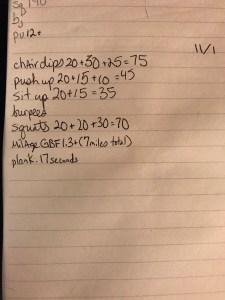 Sq 190
bj
pu 12+
11/1
chair dips 20+30+25=75
push up 20+15+10=45
sit up 20+15=35
burpees
squats 20+20+30=70
MilAge GBF 1.3+(7miles total)
plank. 17 seconds